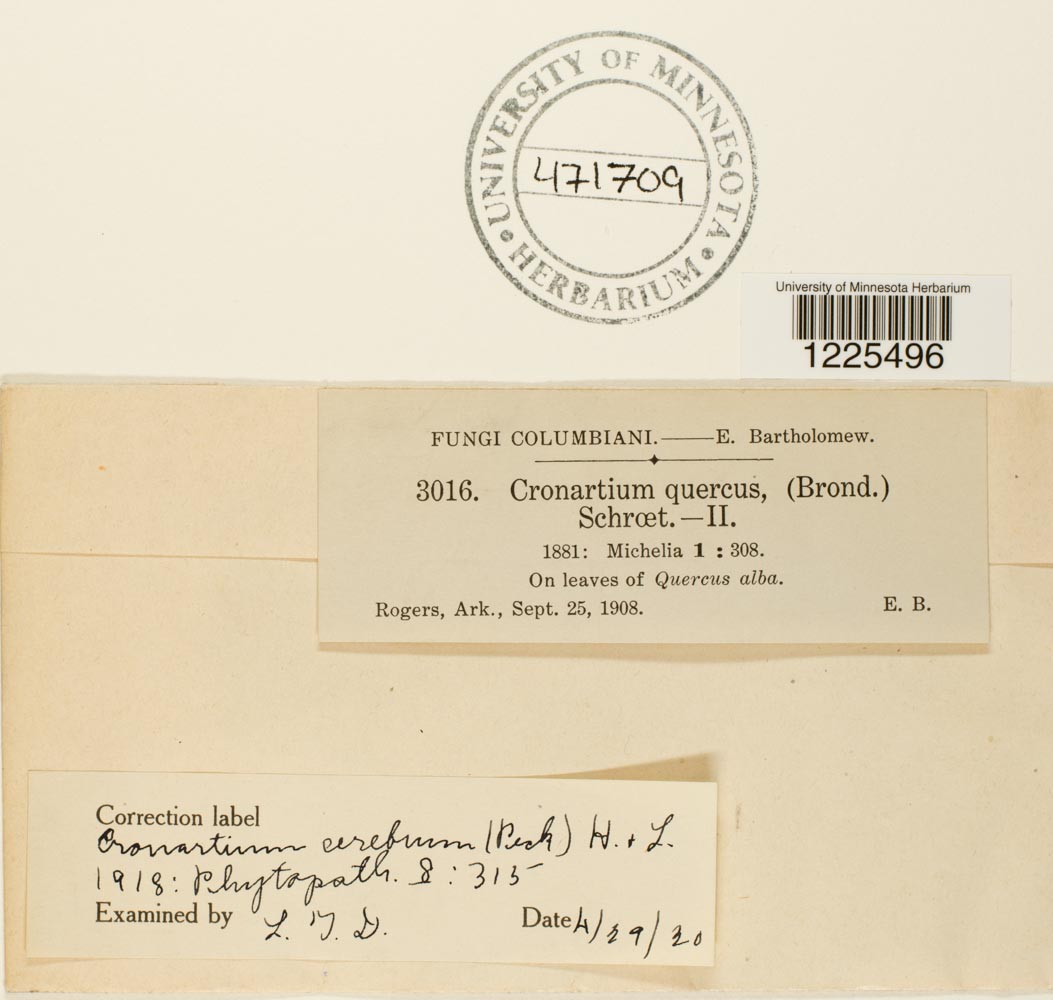 UNIVERSITY OF MINNESOTA
471709
• HERBARIUM •
University of Minnesota Herbarium
1225496
FUNGI COLUMBIANI.——E. Bartholomew.
3016. Cronartium quercus, (Brond.)
Schrœt.—II.
1881: Michelia 1 : 308.
On leaves of Quercus alba.
Rogers, Ark., Sept. 25, 1908. E. B.
Correction label
Cronartium cerebrum (Peck) H. + L.
1918: Phytopath. 8 : 315
Examined by L. J. D. Date 4/29/20